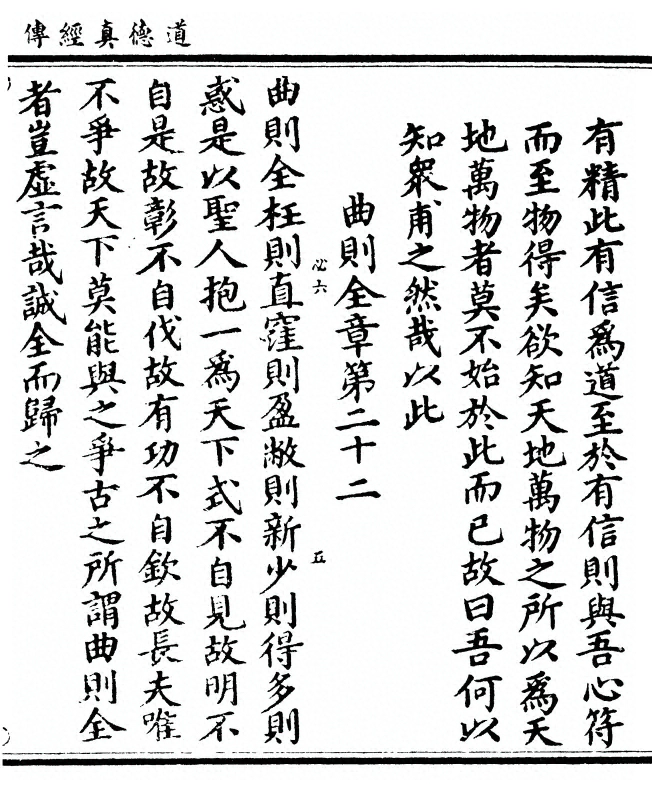 道德真經傳
有精此有信為道至於有信則與吾心符
而至物得矣欲知天地萬物之所以為天
地萬物者莫不始於此而已故曰吾何以
知衆甫之然哉以此
曲則全章第二十二
必六
五
曲則全枉則直窪則盈敝則新少則得多則
惑是以聖人抱一為天下式不自見故明不
自是故彰不自伐故有功不自欽故長夫唯
不爭故天下莫能與之爭古之所謂曲則全
者豈虛言哉誠全而歸之